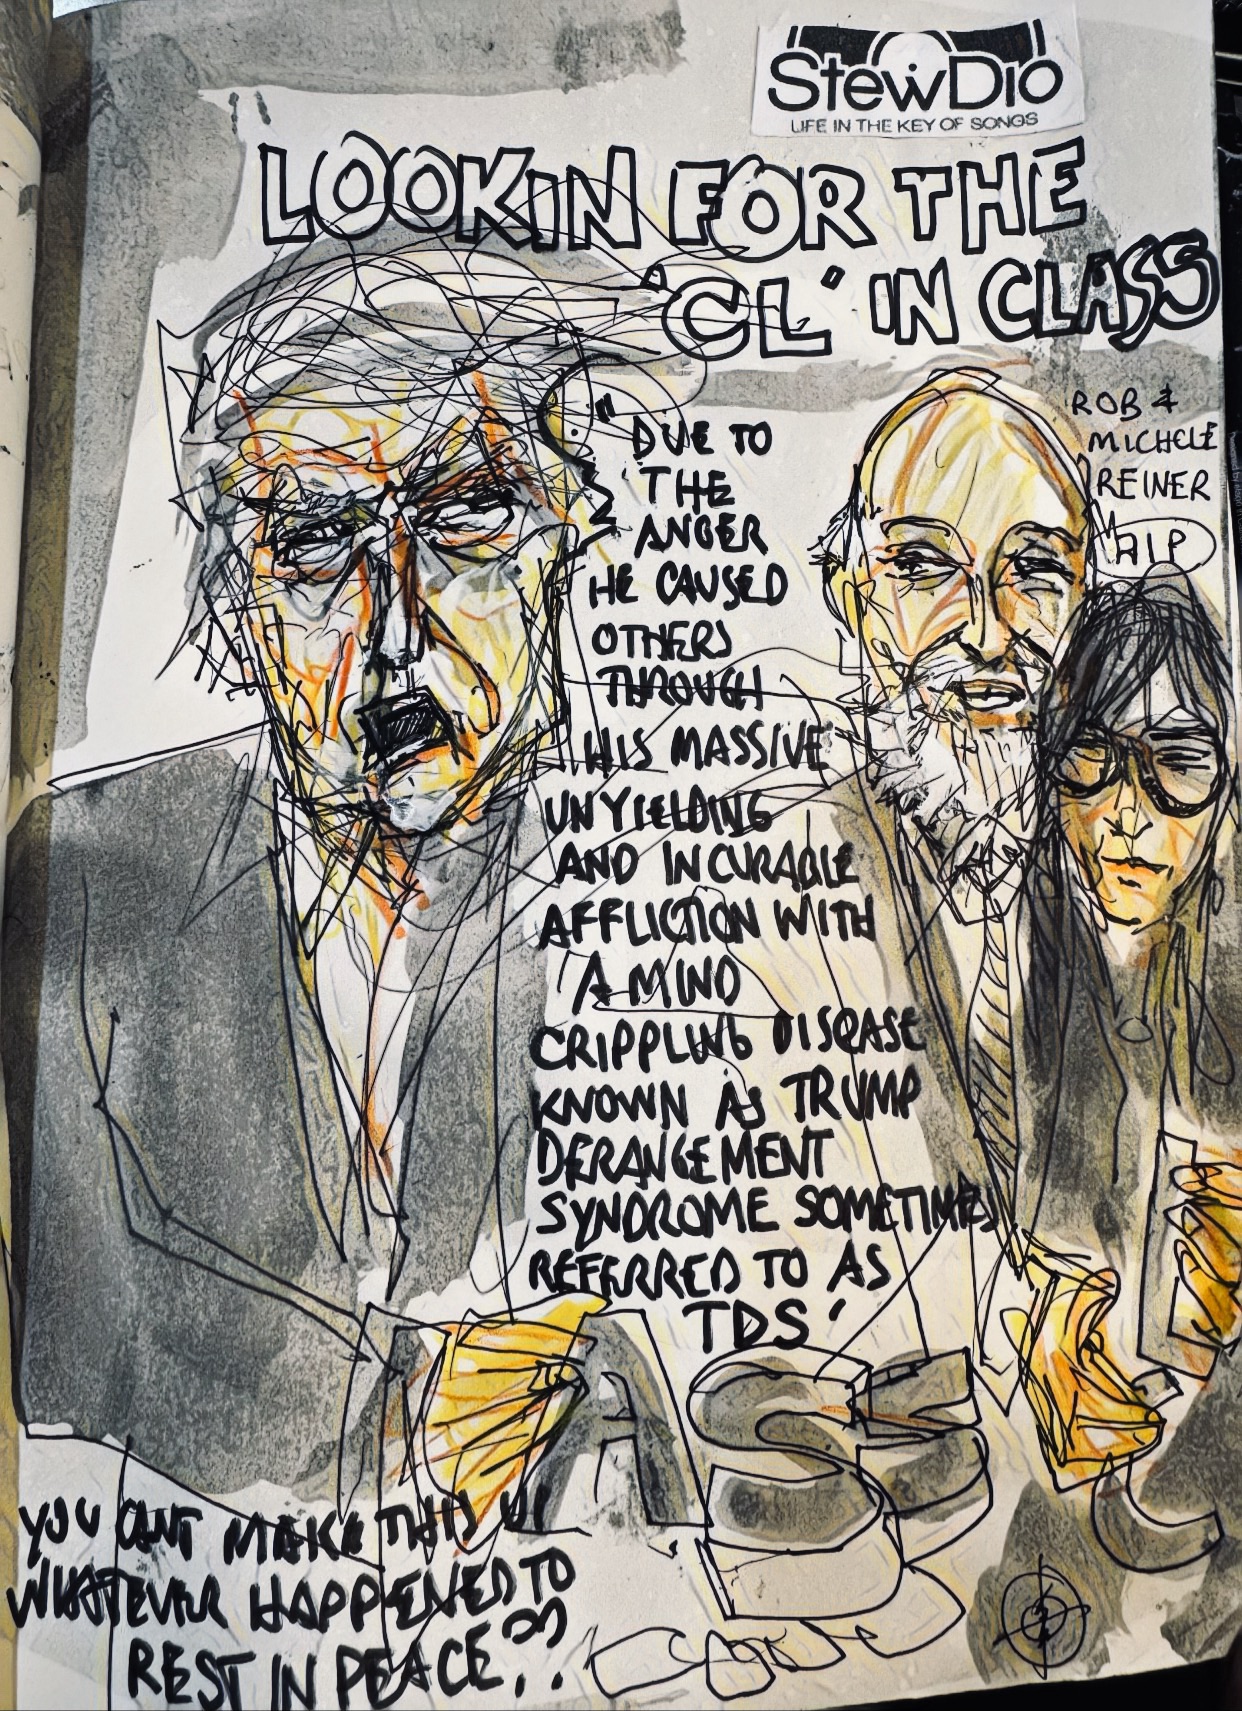 StewDio
LIFE IN THE KEY OF SONGS
LOOKIN FOR THE
'CL' IN CLASS
ROB &
MICHELE
REINER
RIP
"DUE TO
THE
ANGER
HE CAUSED
OTHERS
THROUGH
HIS MASSIVE
UNYIELDING
AND INCURABLE
AFFLICTION WITH
A MIND
CRIPPLING DISEASE
KNOWN AS TRUMP
DERANGEMENT
SYNDROME SOMETIMES
REFERRED TO AS
TDS'
ASS
C
YOU CANT MAKE THIS UP
WHATEVER HAPPENED TO
REST IN PEACE??